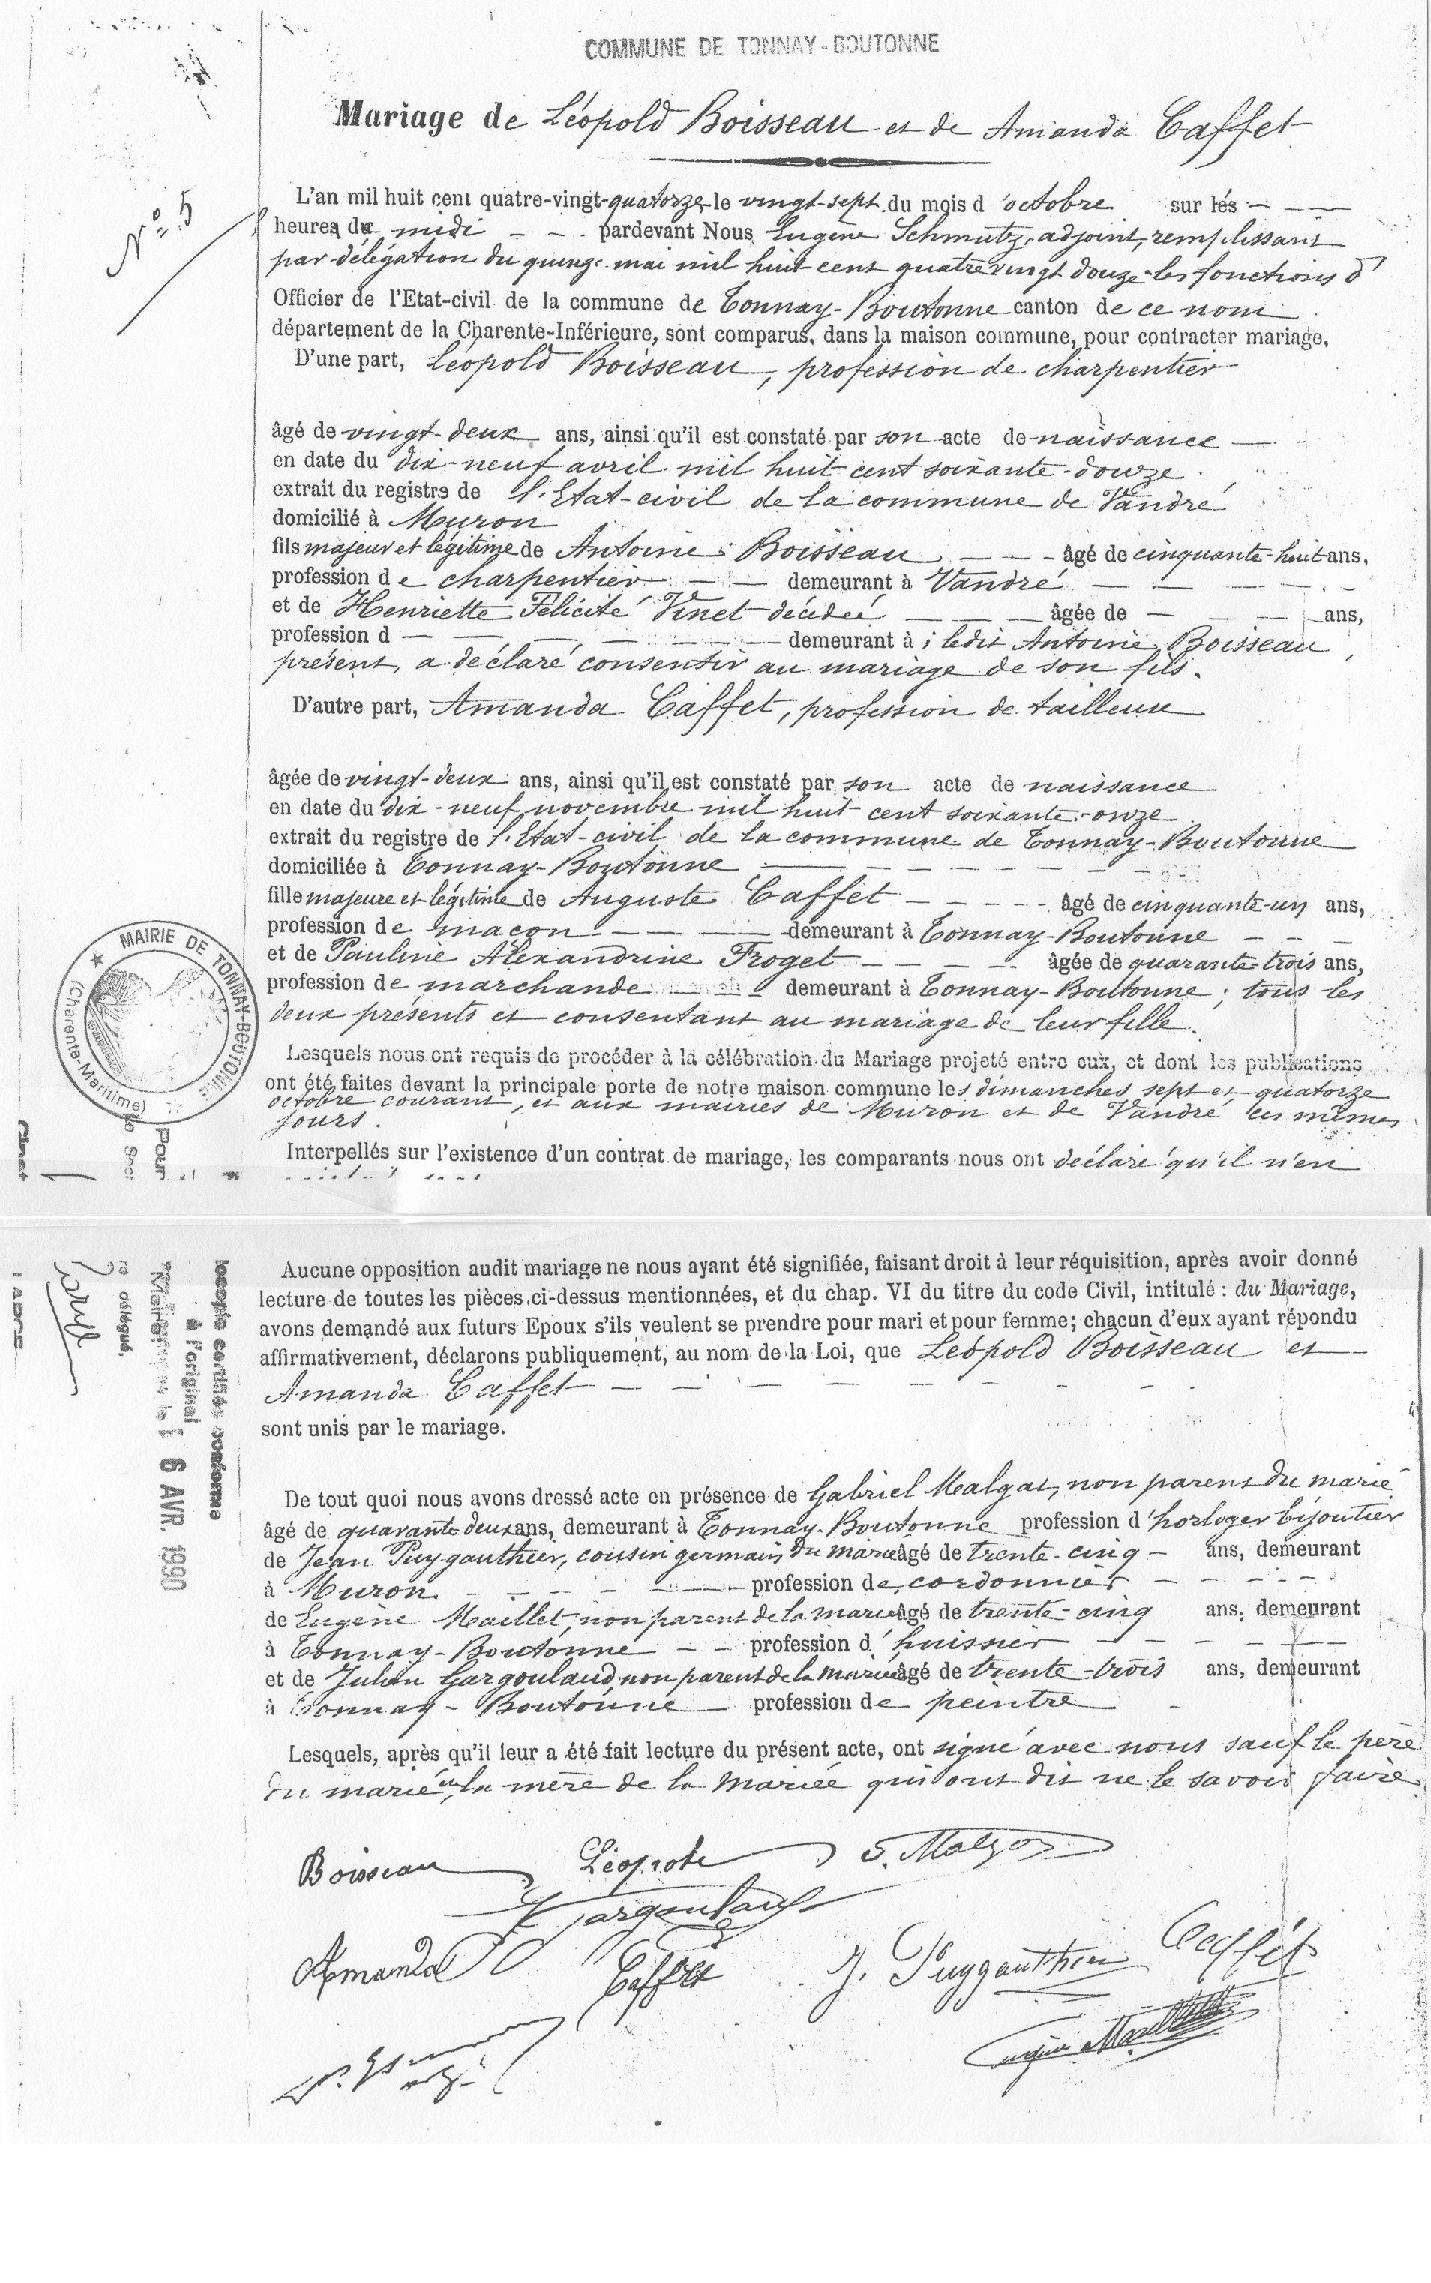 COMMUNE DE TONNAY-BOUTONNE
Mariage de Léopold Boisseau et de Amanda Caffet
N° 5
L'an mil huit cent quatre-vingt-quatorze le vingt-sept du mois d'octobre sur les
heures du midi pardevant Nous Eugène Schmutz, adjoint, remplissant
par délégation du quinze mai mil huit cent quatre vingt douze les fonctions d'
Officier de l'Etat-civil de la commune de Tonnay-Boutonne canton de ce nom
département de la Charente-Inférieure, sont comparus, dans la maison commune, pour contracter mariage,
D'une part, Léopold Boisseau, profession de charpentier
âgé de vingt-deux ans, ainsi qu'il est constaté par son acte de naissance
en date du dix-neuf avril mil huit cent soixante-douze
extrait du registre de l'Etat-civil de la commune de Vandré
domicilié à Muron
fils majeur et légitime de Antoine Boisseau âgé de cinquante-huit ans,
profession de charpentier demeurant à Vandré
et de Henriette Félicité Vinet décédée âgée de ans,
profession d demeurant à ; ledit Antoine Boisseau,
présent, a déclaré consentir au mariage de son fils.
D'autre part, Amanda Caffet, profession de tailleuse
âgée de vingt-deux ans, ainsi qu'il est constaté par son acte de naissance
en date du dix-neuf novembre mil huit cent soixante-onze
extrait du registre de l'Etat-civil de la commune de Tonnay-Boutonne
domiciliée à Tonnay-Boutonne
fille majeure et légitime de Auguste Caffet âgé de cinquante-un ans,
profession de maçon demeurant à Tonnay-Boutonne
et de Pauline Alexandrine Froget âgée de quarante-trois ans,
profession de marchande demeurant à Tonnay-Boutonne ; tous les
deux présents et consentant au mariage de leur fille.
Lesquels nous ont requis de procéder à la célébration du Mariage projeté entre eux, et dont les publications
ont été faites devant la principale porte de notre maison commune les dimanches sept et quatorze
octobre courant, et aux mairies de Muron et de Vandré les mêmes
jours.
Interpellés sur l'existence d'un contrat de mariage, les comparants nous ont déclaré qu'il n'en
MAIRIE DE TONNAY-BOUTONNE
(Charente-Maritime)
Pour
Aucune opposition audit mariage ne nous ayant été signifiée, faisant droit à leur réquisition, après avoir donné
lecture de toutes les pièces ci-dessus mentionnées, et du chap. VI du titre du code Civil, intitulé : du Mariage,
avons demandé aux futurs Epoux s'ils veulent se prendre pour mari et pour femme ; chacun d'eux ayant répondu
affirmativement, déclarons publiquement, au nom de la Loi, que Léopold Boisseau et
Amanda Caffet
sont unis par le mariage.
De tout quoi nous avons dressé acte en présence de Gabriel Malgat, non parent du marié
âgé de quarante deux ans, demeurant à Tonnay-Boutonne profession d'horloger bijoutier
de Jean Puygauthier, cousin germain du marié âgé de trente-cinq ans, demeurant
à Muron profession de cordonnier
de Eugène Maillet, non parent de la mariée âgé de trente-cinq ans, demeurant
à Tonnay-Boutonne profession d'huissier
et de Julien Gargoulaud non parent de la mariée âgé de trente-trois ans, demeurant
à Tonnay-Boutonne profession de peintre
Lesquels, après qu'il leur a été fait lecture du présent acte, ont signé avec nous sauf le père
du marié et la mère de la mariée qui ont dit ne le savoir faire.
Boisseau Léopold G. Malgat
Gargoulaud
Amanda Caffet J. Puygauthier Caffet
Eugène Maillet
certifiée conforme
à l'original
6 AVR. 1990
délégué,